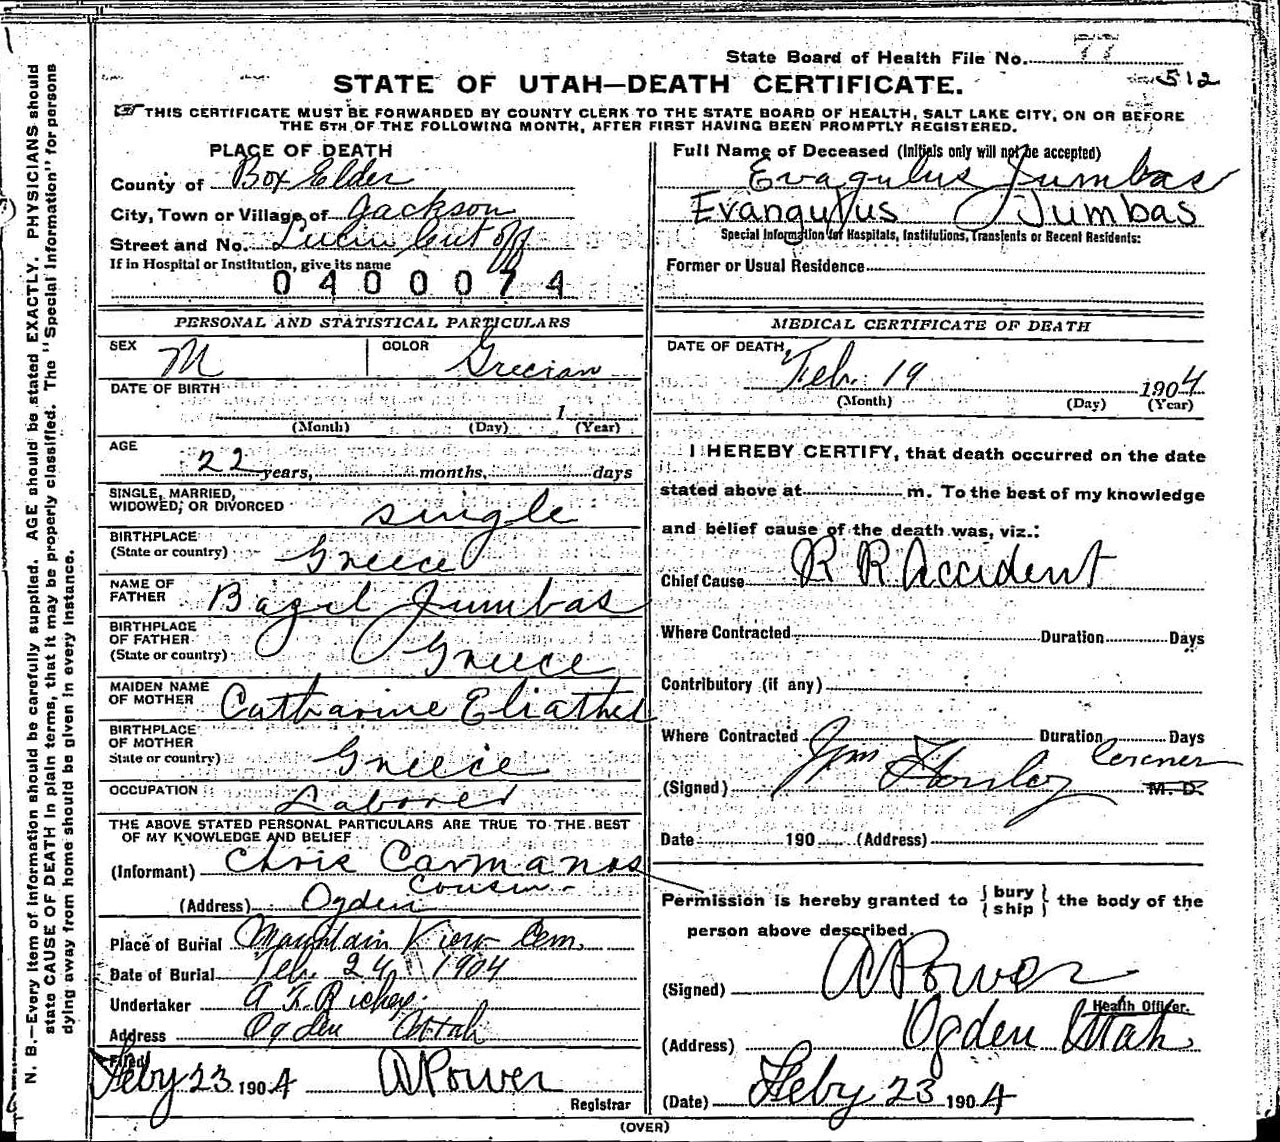 State Board of Health File No. 77
512
STATE OF UTAH—DEATH CERTIFICATE.
THIS CERTIFICATE MUST BE FORWARDED BY COUNTY CLERK TO THE STATE BOARD OF HEALTH, SALT LAKE CITY, ON OR BEFORE
THE 5TH OF THE FOLLOWING MONTH, AFTER FIRST HAVING BEEN PROMPTLY REGISTERED.
N. B.—Every item of information should be carefully supplied. AGE should be stated EXACTLY. PHYSICIANS should
state CAUSE OF DEATH in plain terms, that it may be properly classified. The "Special Information" for persons
dying away from home should be given in every instance.
PLACE OF DEATH
County of Box Elder
City, Town or Village of Jackson
Street and No. Lucin Cut off
If in Hospital or Institution, give its name
0400074
PERSONAL AND STATISTICAL PARTICULARS
SEX M COLOR Grecian
DATE OF BIRTH
1
(Month) (Day) (Year)
AGE
22 years, months, days
SINGLE, MARRIED,
WIDOWED, OR DIVORCED single
BIRTHPLACE
(State or country) Greece
NAME OF
FATHER Bazil Jumbas
BIRTHPLACE
OF FATHER
(State or country) Greece
MAIDEN NAME
OF MOTHER Catharine
BIRTHPLACE
OF MOTHER
State or country) Greece
OCCUPATION Laborer
THE ABOVE STATED PERSONAL PARTICULARS ARE TRUE TO THE BEST
OF MY KNOWLEDGE AND BELIEF
(Informant) Chris Carmanos
Cousin
(Address) Ogden
Place of Burial Mountain View Cem.
Date of Burial Feb. 24 1904
Undertaker
Address Ogden Utah
Filed
Feby 23 1904 A Power
Registrar
Full Name of Deceased (Initials only will not be accepted)
Evagulus Jumbas
Evangulus Jumbas
Special Information for Hospitals, Institutions, Transients or Recent Residents:
Former or Usual Residence
MEDICAL CERTIFICATE OF DEATH
DATE OF DEATH,
Feb. 19 1904
(Month) (Day) (Year)
I HEREBY CERTIFY, that death occurred on the date
stated above at m. To the best of my knowledge
and belief cause of the death was, viz.:
Chief Cause R R Accident
Where Contracted Duration Days
Contributory (if any)
Where Contracted Duration Days
Coroner
(Signed) M. D.
Date 190 (Address)
Permission is hereby granted to { bury ship } the body of the
person above described.
(Signed) A Power
Health Officer.
(Address) Ogden Utah
(Date) Feby 23 1904
(OVER)